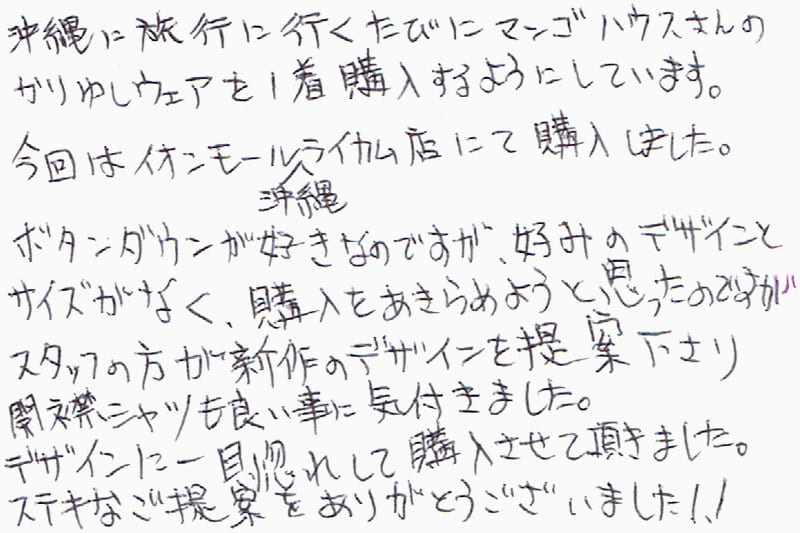 沖縄に旅行に行くたびにマンゴハウスさんの
かりゆしウェアを1着購入するようにしています。
今回はイオンモール沖縄ライカム店にて購入しました。
ボタンダウンが好きなのですが、好みのデザインと
サイズがなく、購入をあきらめようと思ったのですが
スタッフの方が新作のデザインを提案下さり
開襟シャツも良い事に気付きました。
デザインに一目惚れして購入させて頂きました。
ステキなご提案をありがとうございました!!